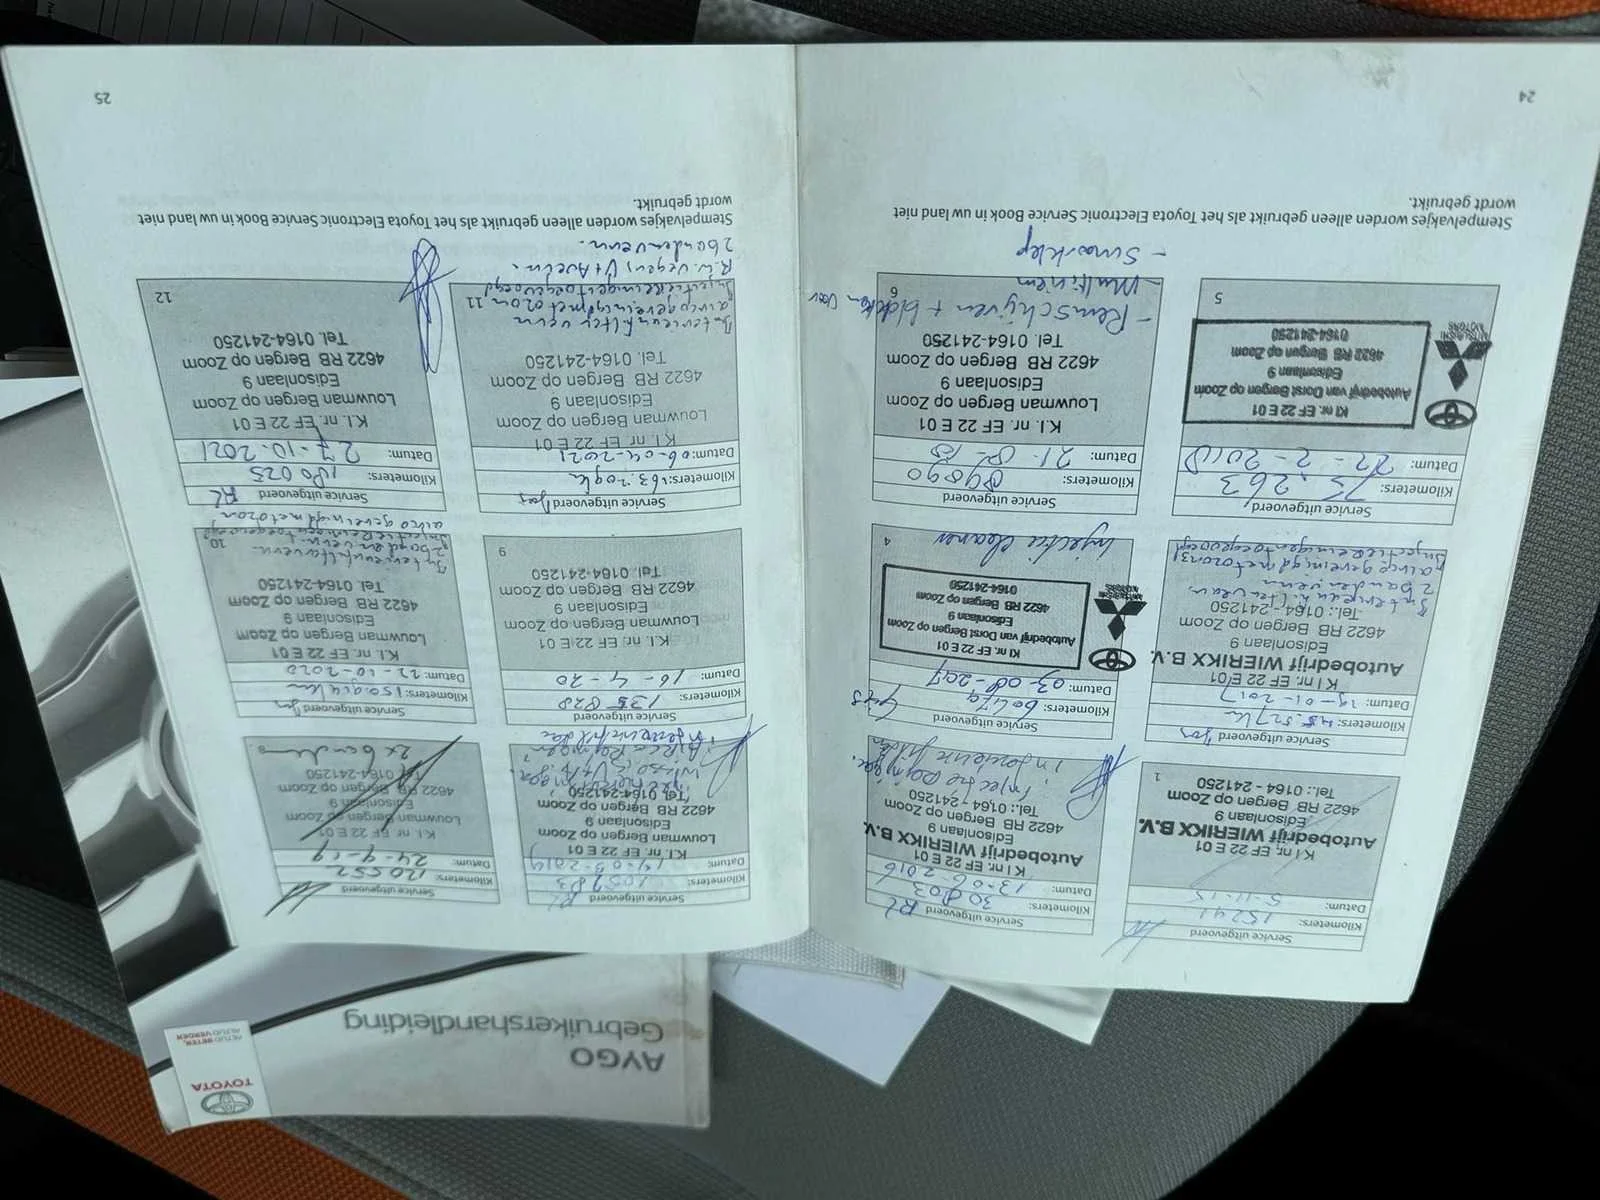 24
Stempelvakjes worden alleen gebruikt als het Toyota Electronic Service Book in Service niet in uw land
wordt gebruikt.
Service uitgevoerd
Kilometers: 15241
Datum: 5-11-15
K I nr. EF 22 E 01
Autobedrijf WIERIKX B.V.
Edisonlaan 9
4622 RB Bergen op Zoom
Tel.: 0164 - 241250
1
Service uitgevoerd RL
Kilometers: 30803
Datum: 13-06-2016
K I nr. EF 22 E 01
Autobedrijf WIERIKX B.V.
Edisonlaan 9
4622 RB Bergen op Zoom
Tel.: 0164 - 241250
Injectie reiniger.
interieurfilter
Service uitgevoerd
Kilometers: 45.527 km
Datum: -01-2017
K I nr. EF 22 E/01
Autobedrijf WIERIKX B.V.
Edisonlaan 9
4622 RB Bergen op Zoom
Tel.: 0164 - 241250
2 banden vern
airco gereinigd met ozon
Injectie Reiniger toegevoegd
Service uitgevoerd
Kilometers:
Datum: 03-08-2017
KI nr. EF 22 E 01
Autobedrijf van Dorst Bergen op Zoom
Edisonlaan 9
4622 RB Bergen op Zoom
0164-241250
MITSUBISHI
MOTORS
4
Injectie cleaner
Service uitgevoerd
Kilometers: 75.263
Datum: 22-2-2018
KI nr. EF 22 E 01
Autobedrijf van Dorst Bergen op Zoom
Edisonlaan 9
4622 RB Bergen op Zoom
0164-241250
MITSUBISHI
MOTORS
5
Service uitgevoerd
Kilometers: 89890
Datum: 21-8-18
K.I. nr EF 22 E 01
Louwman Bergen op Zoom
Edisonlaan 9
4622 RB Bergen op Zoom
Tel. 0164-241250
6
- Remschijven + blokken voor
- Multiriem
25
Stempelvakjes worden alleen gebruikt als het Toyota Electronic Service Book in uw land niet
wordt gebruikt.
Service uitgevoerd RL
Kilometers: 105983
Datum: 14-03-2019
K.I. nr. EF 22 E 01
Louwman Bergen op Zoom
Edisonlaan 9
4622 RB Bergen op Zoom
Tel. 0164-241250
Service uitgevoerd
Kilometers: 120552
Datum: 24-9-19
K.I. nr EF 22 E 01
Louwman Bergen op Zoom
Edisonlaan 9
4622 RB Bergen op Zoom
Tel. 0164-241250
8
2x banden
Service uitgevoerd
Kilometers: 135828
Datum: 16-4-20
K.I. nr. EF 22 E 01
Louwman Bergen op Zoom
Edisonlaan 9
4622 RB Bergen op Zoom
Tel. 0164-241250
9
Service uitgevoerd
Kilometers: 150.914 km
Datum: 22-10-2020
K.I. nr. EF 22 E 01
Louwman Bergen op Zoom
Edisonlaan 9
4622 RB Bergen op Zoom
Tel. 0164-241250
10
Interieurfilter vern.
2 banden vern.
airco gereinigd met ozon
Service uitgevoerd
Kilometers: 163.209 km
Datum: 06-04-2021
K.I. nr EF 22 E 01
Louwman Bergen op Zoom
Edisonlaan 9
4622 RB Bergen op Zoom
Tel. 0164-241250
11
Interieurfilter vern
airco gereinigd met ozon
Injectie Reiniger toegevoegd
2 banden vern.
Service uitgevoerd RL
Kilometers: 180025
Datum: 27-10-2021
K.I. nr EF 22 E 01
Louwman Bergen op Zoom
Edisonlaan 9
4622 RB Bergen op Zoom
Tel. 0164-241250
12
AYGO
Gebruikershandleiding
TOYOTA
ALTIJD BETER,
ALTIJD VERDER